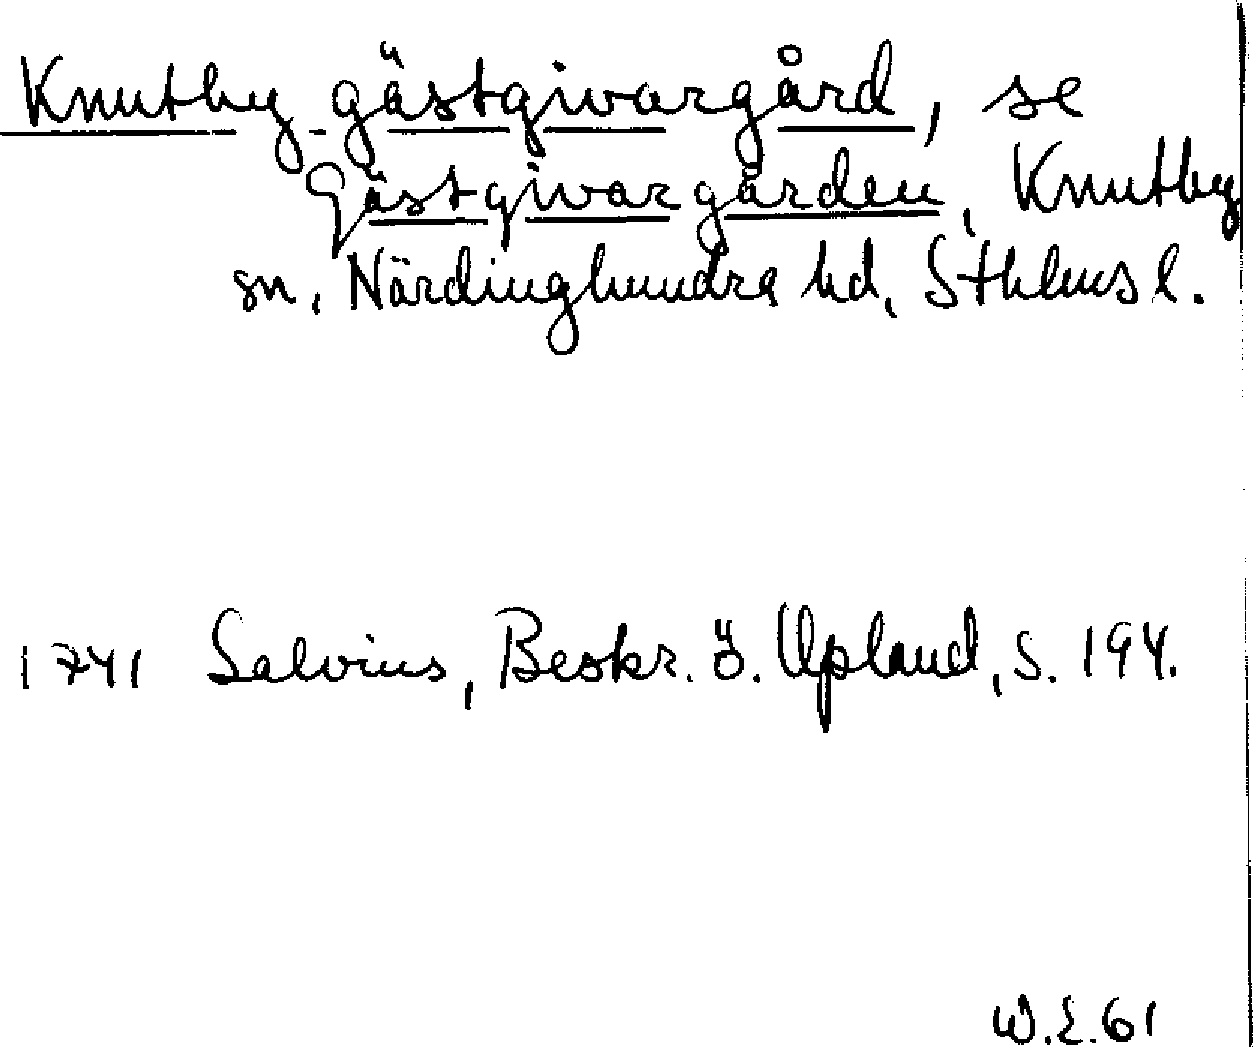 Knutby gästgivargård, se
Gästgivargården, Knutby
sn, Närdinghundra hd, Sthlms l.
1741 Salvius, Beskr. ö. Upland, s. 194.
W.E.61